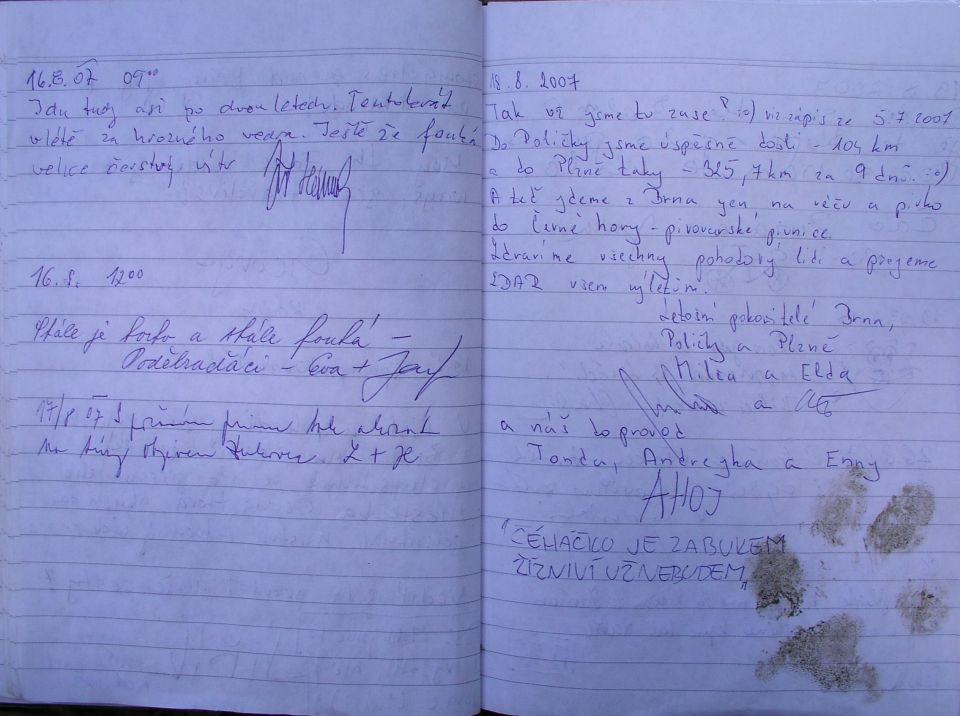 16.8.07 09⁰⁰
Jdu tudy asi po dvou letech. Tentokrát
v létě za hrozného vedra. Ještě že fouká
velice čerstvý vítr
16.8. 12⁰⁰
Stále je horko a stále fouká –
Poděbraďáci – Eva + Josef
17/8 07 S
na Z + H
18.8. 2007
Tak už jsme tu zase :o) viz zápis ze 5.7.2007
Do Poličky jsme úspěšně došli – 104 km
a do Plzně taky – 325,7km za 9 dnů. :o)
A teď jdeme z Brna jen na véču a pivko
do Černé hory – pivovarské pivnice.
Zdravíme všechny pohodový lidi a přejeme
ZDAR všem výletům.
Letošní pokořitelé Brna,
Poličky a Plzně
Milča a Elda
a
a náš doprovod
Tonda, Andrejka a Enny
AHOJ
"CÉHÁČKO JE ZA BUKEM
ŽÍZNIVÍ UŽ NEBUDEM"